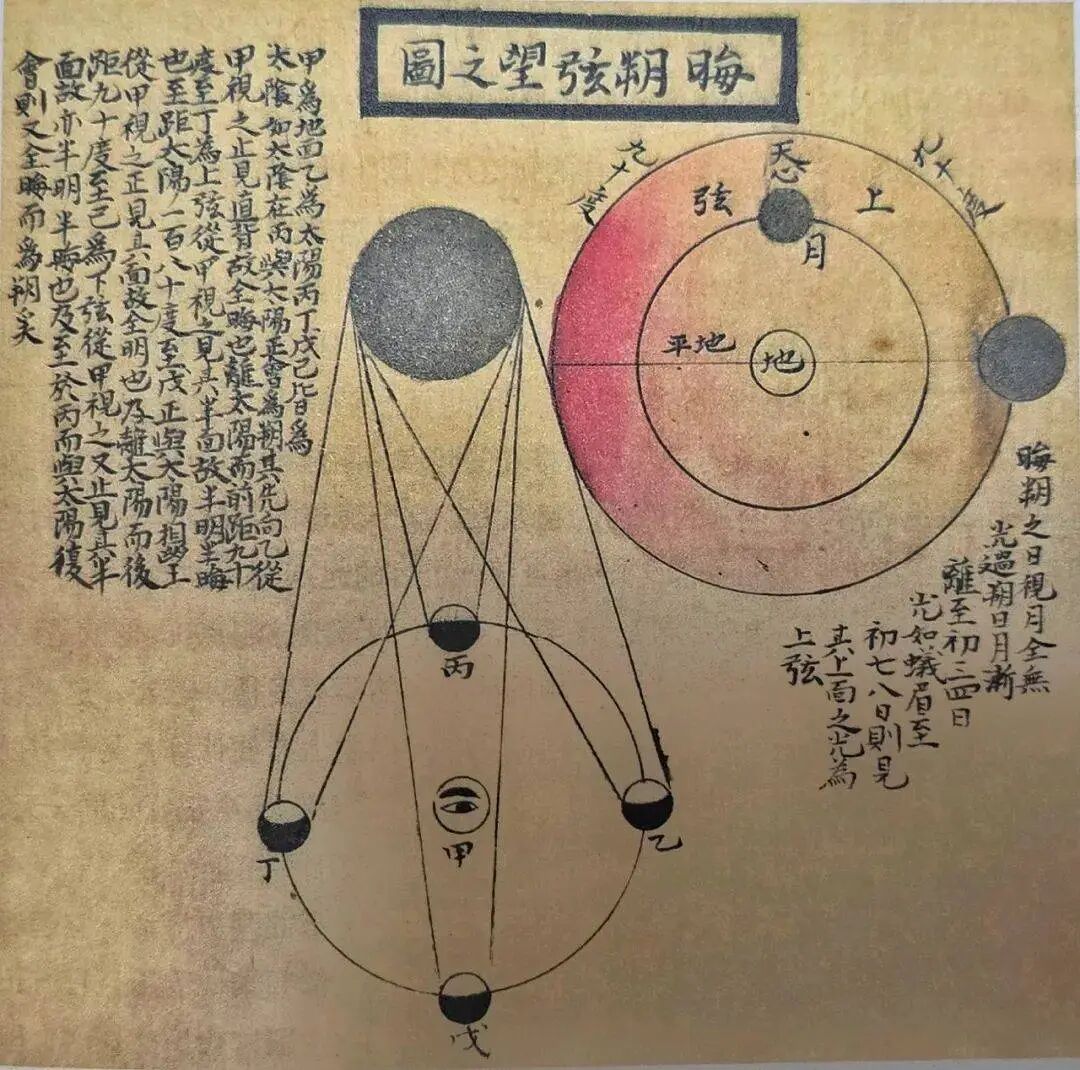 晦朔弦望之圖
九十度
九十度
天心
上弦
月
地平
地
晦朔之日視月全無
光過朔日月漸
離至初三四日
光如蟻眉至
初七八日則見
其上面之光為
上弦
甲為地面乙為太陽丙丁戊己皆為
太陰如太陰在丙與太陽正會為朔其光向乙從
甲視之止見直背故全晦也離太陽而前距九十
度至丁為上弦從甲視之見其半面故半明半晦
也至距太陽一百八十度至戊正與太陽相望
從甲視之正見其面故全明也及離太陽而後
距九十度至己為下弦從甲視之又止見其半
面故亦半明半晦也及至於丙而與太陽復
會則又全晦而為朔矣
丙
乙
甲
丁
戊